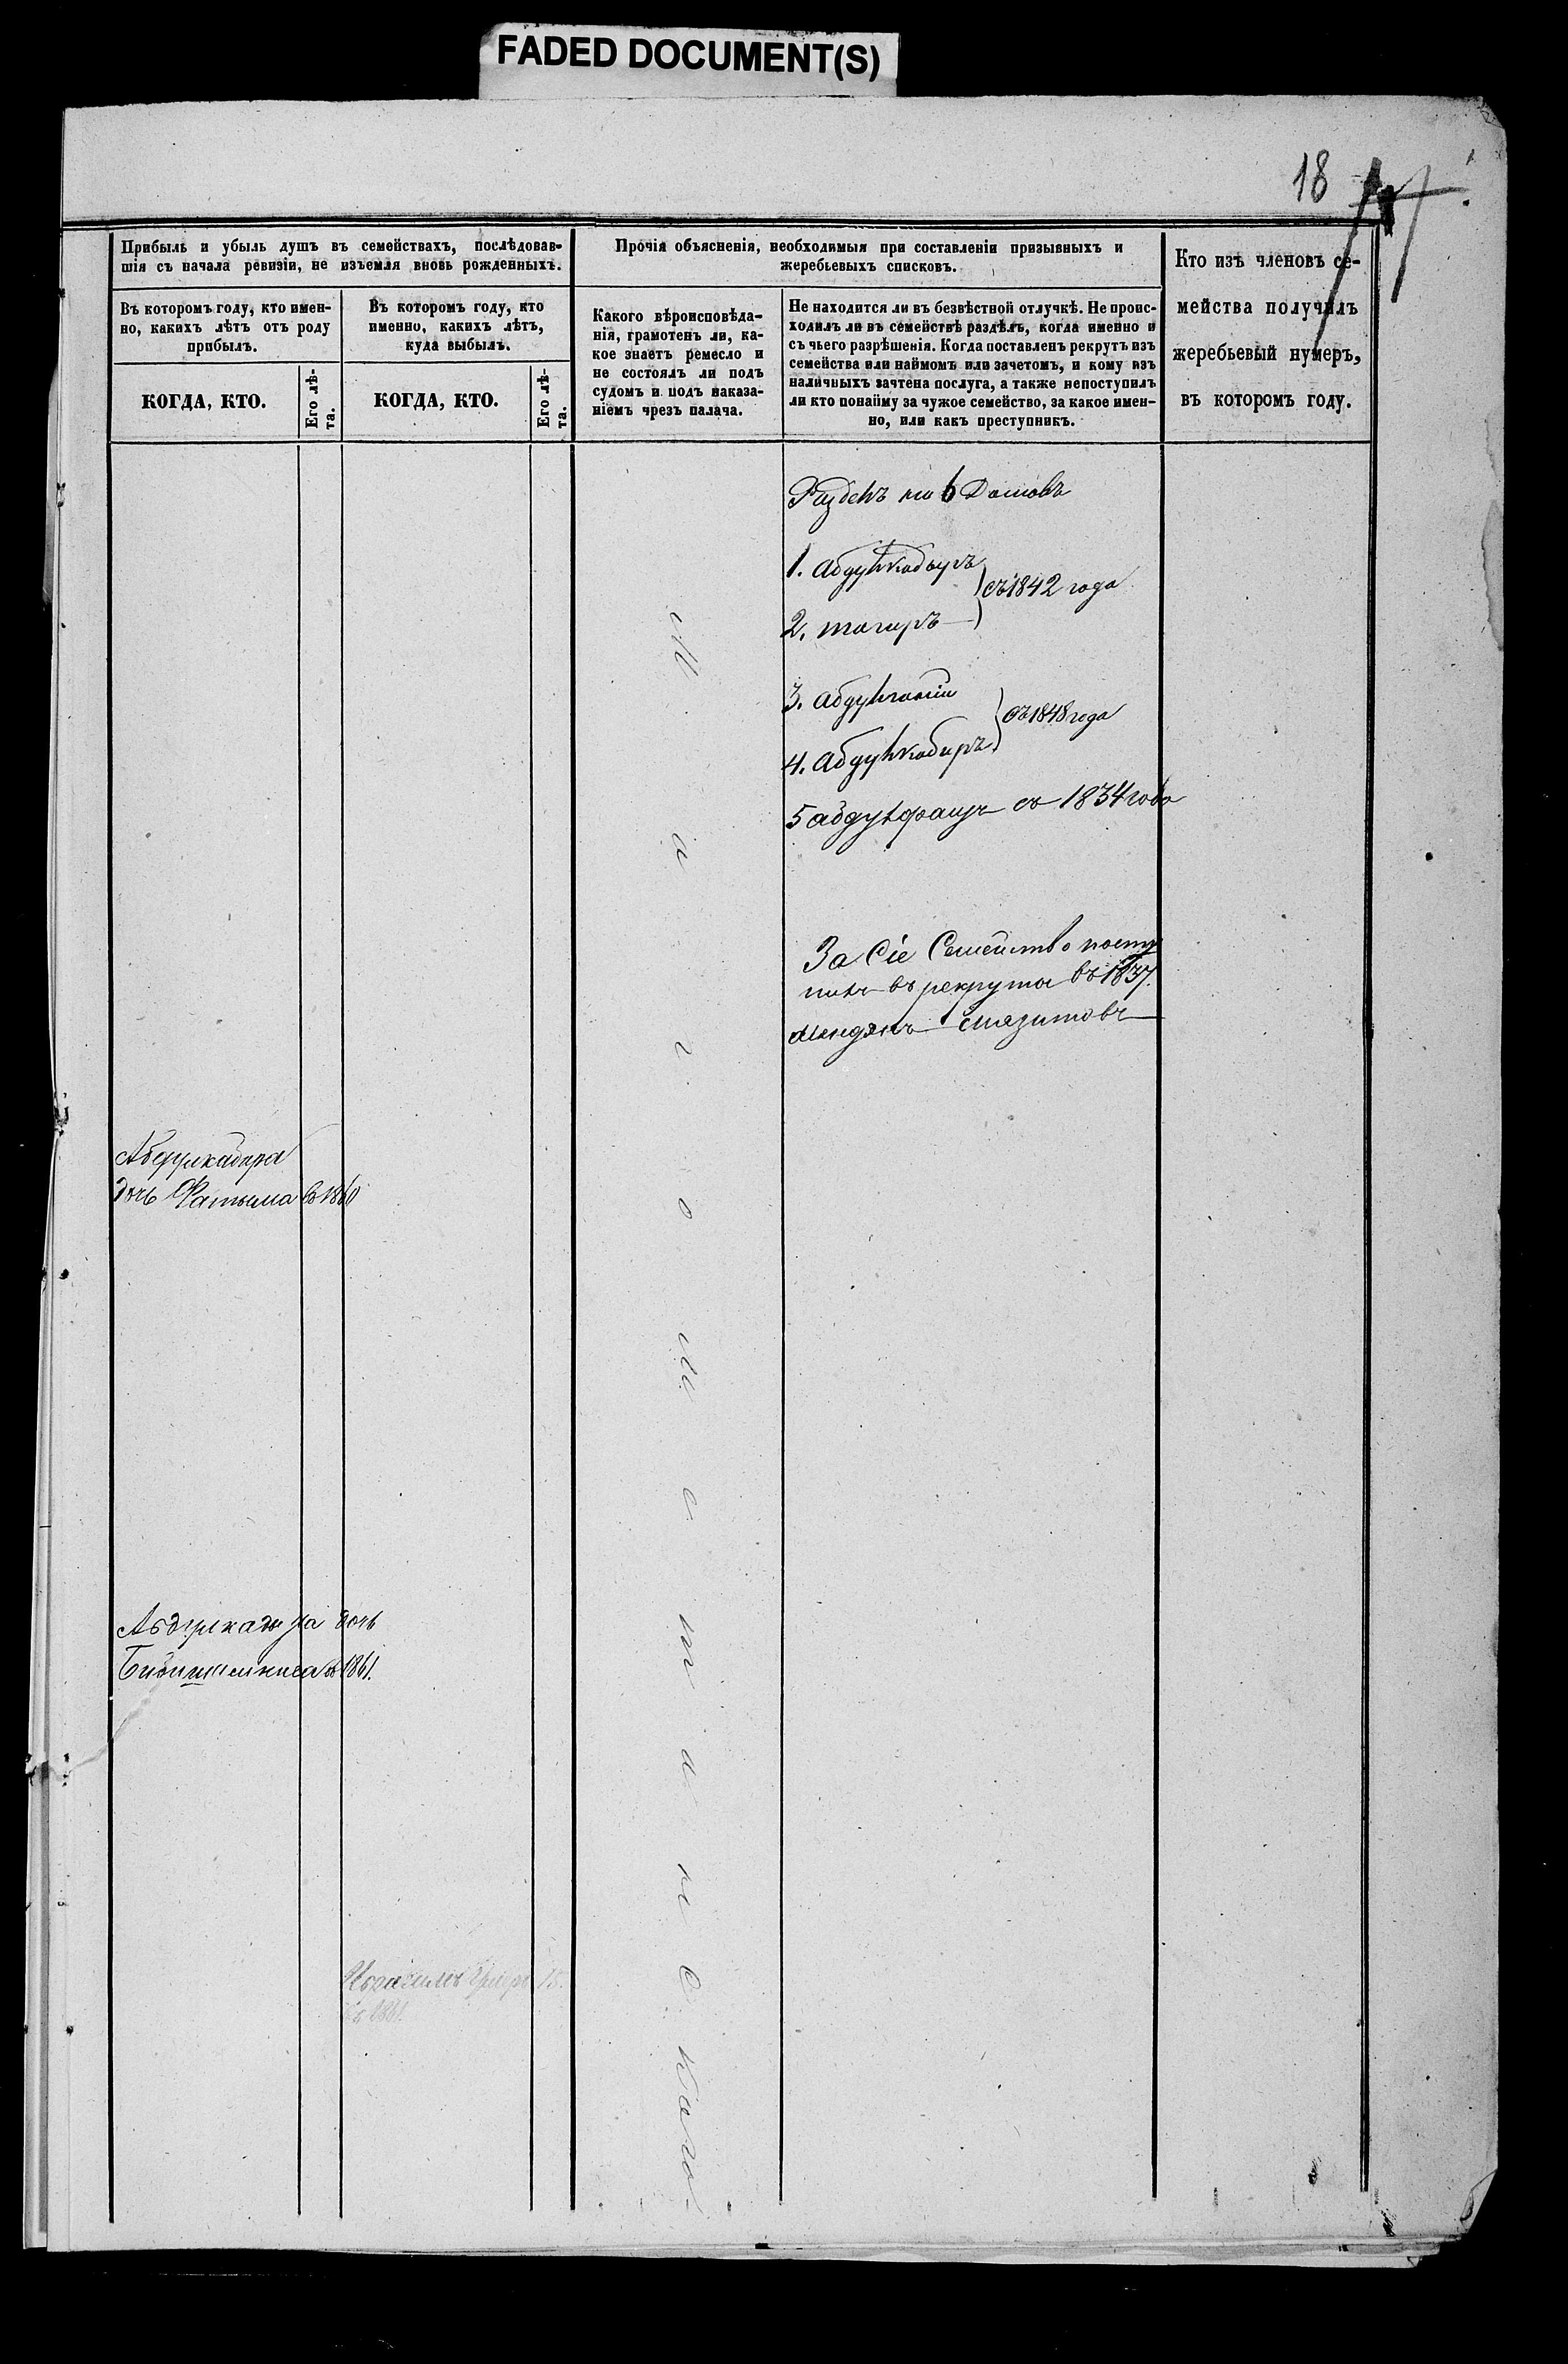 FADED DOCUMENT(S)
18
Прибыль и убыль душъ въ семействахъ, послѣдовав-
шія съ начала ревизіи, не изъемля вновь рожденныхъ.
Прочія объясненія, необходимыя при составленіи призывныхъ и
жеребьевыхъ списковъ.
Кто изъ членовъ се-
мейства получилъ
жеребьевый нумеръ,
въ которомъ году.
Въ которомъ году, кто имен-
но, какихъ лѣтъ отъ роду
прибылъ.
Въ которомъ году, кто
именно, какихъ лѣтъ,
куда выбылъ.
Какого вѣроисповѣда-
нія, грамотенъ ли, ка-
кое знаетъ ремесло и
не состоялъ ли подъ
судомъ и подъ наказа-
ніемъ чрезъ палача.
Не находится ли въ безвѣстной отлучкѣ. Не проис-
ходилъ ли въ семействѣ раздѣлъ, когда именно и
съ чьего разрѣшенія. Когда поставленъ рекрутъ изъ
семейства или наймомъ или зачетомъ, и кому изъ
наличныхъ зачтена послуга, а также непоступилъ
ли кто понайму за чужое семейство, за какое имен-
но, или какъ преступникъ.
КОГДА, КТО.
Его лѣ-
та.
КОГДА, КТО.
Его лѣ-
та.
6 Домовъ
1. Абдулкадыръ
2. тагиръ
съ 1842 года
3. Абдулганіи
4. Абдулкабиръ
съ 1848 года
5 абдул съ 1834 года
За Сіе Семейство посту
пилъ въ рекруты въ 1837.
Магометанскаго
Абдулкадыра
дочь Фатыма въ 1860
дочь
въ 1861.